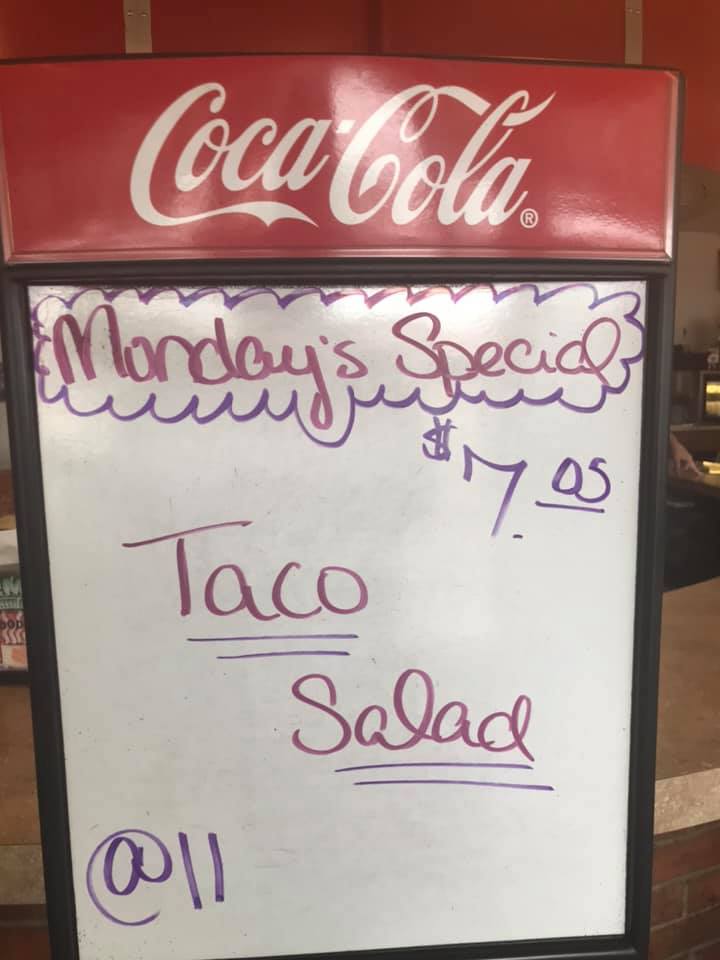 Coca-Cola®
Monday's Special
$7.05
Taco
Salad
@11